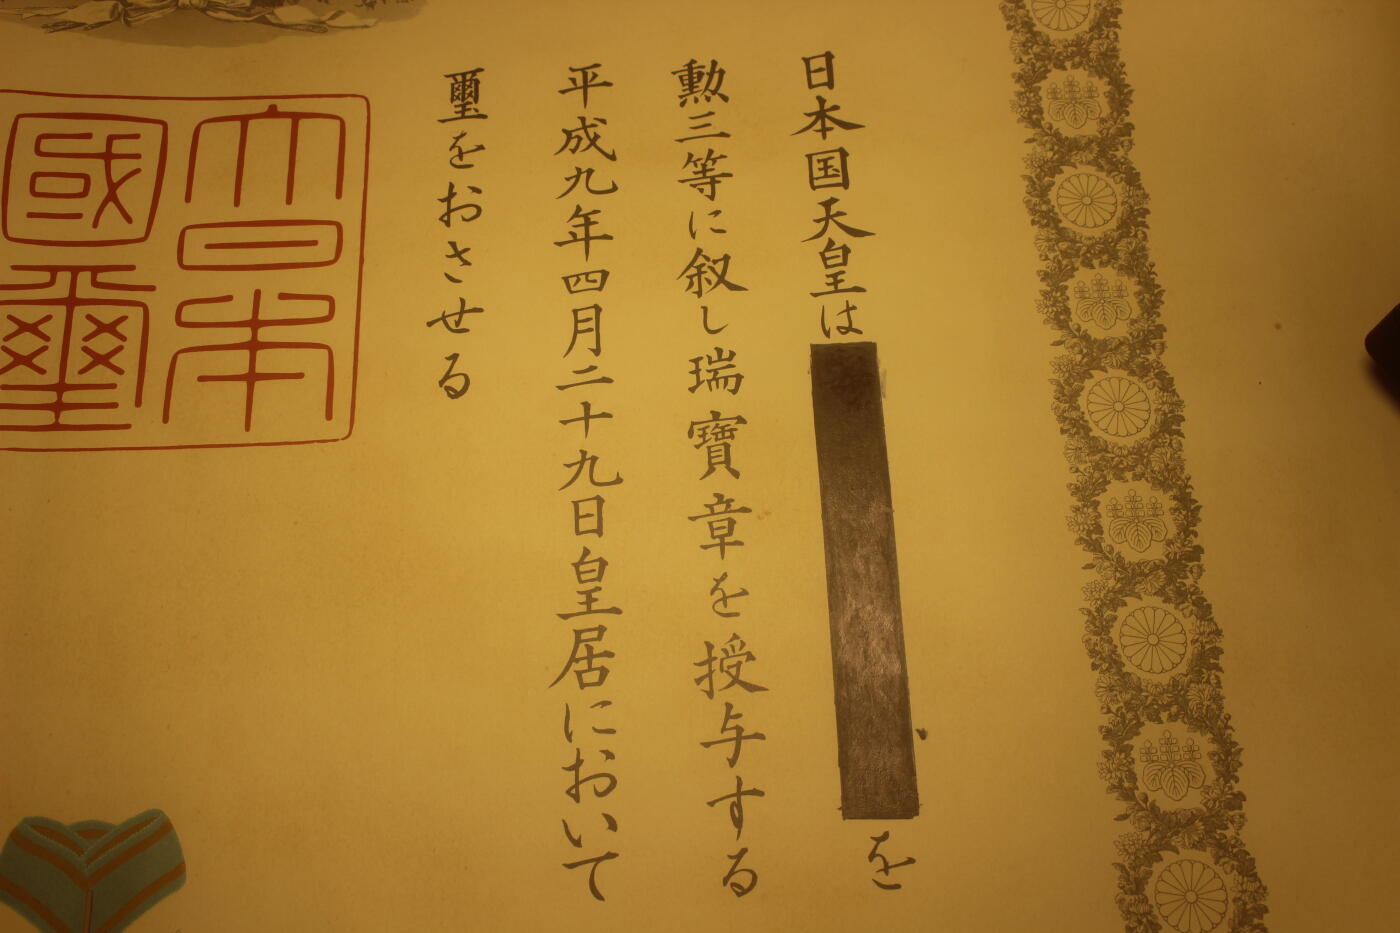 日本国天皇は
を
勲三等に叙し瑞寶章を授与する
平成九年四月二十九日皇居において
璽をおさせる
大日本
國璽